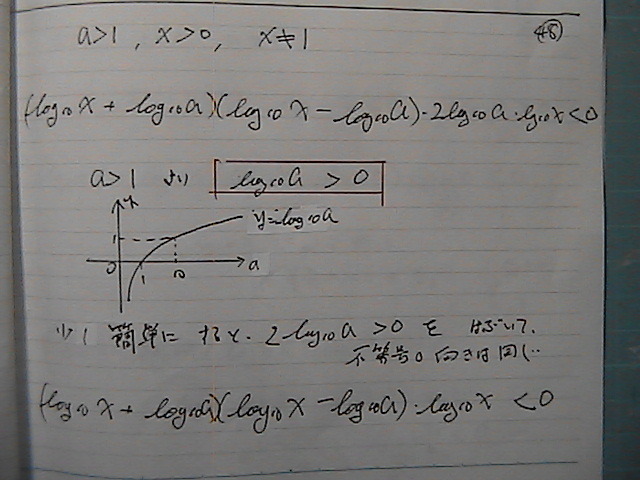 a>1 , x>0, x≠1
48
(log₁₀x + log₁₀a)(log₁₀x − log₁₀a)・2log₁₀a・log₁₀x<0
a>1 より log₁₀a > 0
y
y=log₁₀a
1
0 1 10 a
少し簡単にすると、2log₁₀a>0 を はぶいて、
不等号の向きは同じ‥
(log₁₀x + log₁₀a)(log₁₀x − log₁₀a)・log₁₀x <0